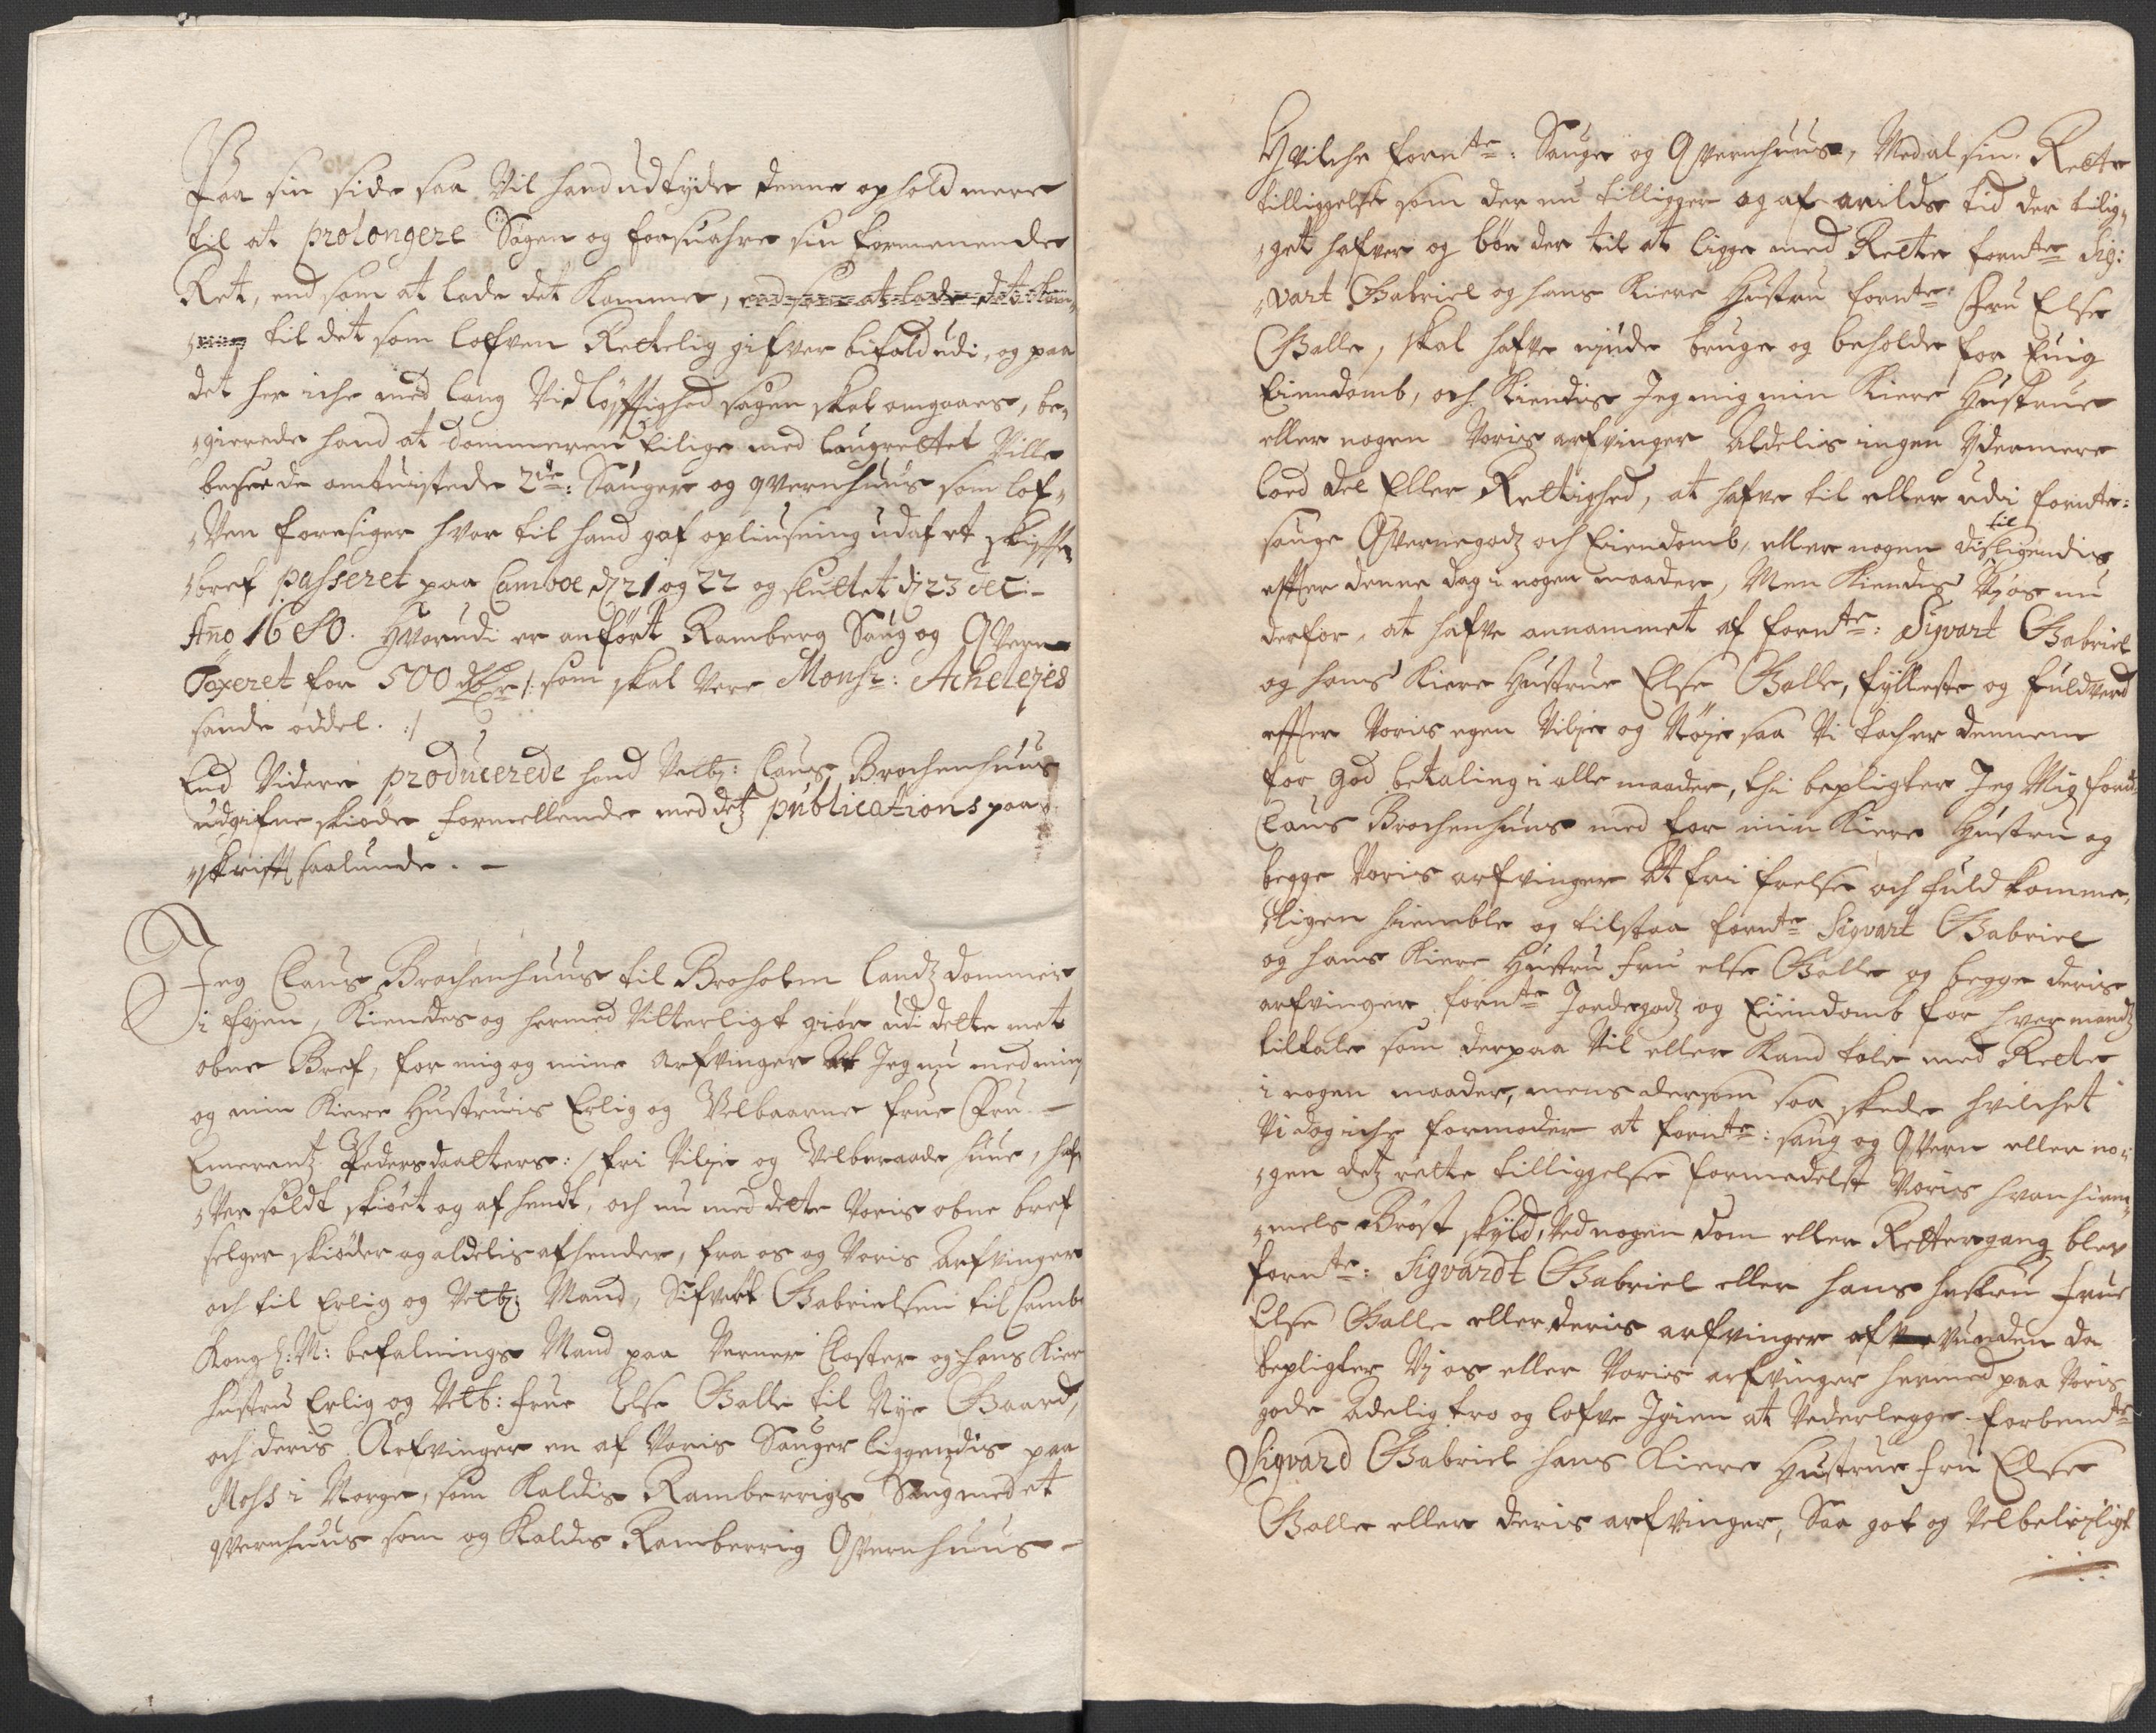 Paa sin side saa Vil hand udtyde denne ophold mere
til at prolongere Sagen og forsuahre sin formenende
Ret, end som at lade det komme, end som at lade det kom¬
me til det som lofven Rettelig gifver bifald udi, og paa
det her iche med lang Vidløfftighed sagen skal omgaaes, be¬
gierede hand at dommeren tilige med laugrettet Ville
besee de omtuistede 2de: Sauger og qVernhuus som lof¬
Ven foresiger hvor til hand gaf opliusning udaf et skiffte
bref passeret paa Camboe d 21 og 22 og sluttet d 23 dec:
Año 1680. Hvorudi er anført Ramberg Saug og qVern
Taxeret for 500 dlr /: som skal Vere Monsr: Acheleÿes
sande oddel. :/
End Videre producerede hand Velb: Claus Brochenhuus
udgifne skiøde formellende med detz publications paa
skrifft saalunde. -
Jeg Claus Brochenhuus til Broholm landz dommer
i Fyen, Kiendes og hermed Vitterligt giør udi dette mit
obne Bref, for mig og mine Arfvinger at Jeg nu med min
og min Kiere Hustruis Erlig og Velbaarne frue Fru
Emerentz Pedersdaatters :/ fri Vilje og Velberaade huue, haf
Ver soldt skiøt og af hendt, och nu med dette Voris obne bref
selger skiøder og aldelis afhender, fra os og Voris Arfvinger
och til Erlig og Velb: Mand, Sifvert Gabrielsen til Cambo
Kong: M: befalnings Mand paa Verner Closter og hans Kier
hustru Erlig og Velb: frue Else Galle til Nye Gaard,
och deris Arfvinger en af Voris Sauger liggendis paa
Moss i Norge, som Kaldis Ramberrigs Saug med et
qVernhuus som og Kaldis Ramberrig qVernhuus -
Hvilche fornte: Sauge og qVernhuus, Med al sin Rette
tilliggelse som der nu tilligger og af arilds tid der tilig¬
get hafver og bør der til at ligge med Rette fornte Sig:
vart Gabriel og hans Kiere Hustru fornte Fru Else
Galle, skal hafve niude bruge og beholde for Evig
Eiendomb, och Kiendis Jeg mig min Kiere Hustrue
eller nogen Voris arfvinger Aldelis ingen Ydermere
lod del Eller Rettighed, at hafve til eller udi fornte:
sauge qVernegodz och Eiendomb, eller nogen dis til ligendis
effter denne dag i nogen maader, Men Kiendis Vj os nu
derfor, at hafve annammet af fornte: Sigvart Gabriel
og hans Kiere Hustrue Else Galle, fylleste og fuldverd
effter Voris egen Vilje og Nøje saa Vi tacher dennem
for god betaling i alle maader, thi bepligter Jeg Mig fornte
Claus Brochenhuus med for min Kiere Hustru og
begge Voris arfvinger At fri frelse och fuld komme,
ligen hiemble og tilstaa fornte Sigvart Gabriel
og hans Kiere Hustru fru else Galle og begge deris
arfvinger fornte Jordegodz og Eiendomb for hver mandz
tiltale som derpaa Vil eller Kand tale med Rette
i nogen maader, mens dersom saa skede hvilchet
Vi dog iche formoder at fornte: saug og qVern eller no¬
gen detz rette tilliggelse formedelst Voris hvanhiem¬
mels Brøst skyld, Ved nogen Dom eller Rettergang blev
fornte: Sigvardt Gabriel eller hans hustru frue
Else Galle eller deris arfvinger af vunden da
bepligter Vj os eller Voris arfvinger hermed paa Voris
gode Adelig tro og lofve Igien at Vederlegge forbemte
Sigvard Gabriel hans Kiere Hustrue fru Else
Galle eller deris arfvinger, Saa got og Velbelejligt